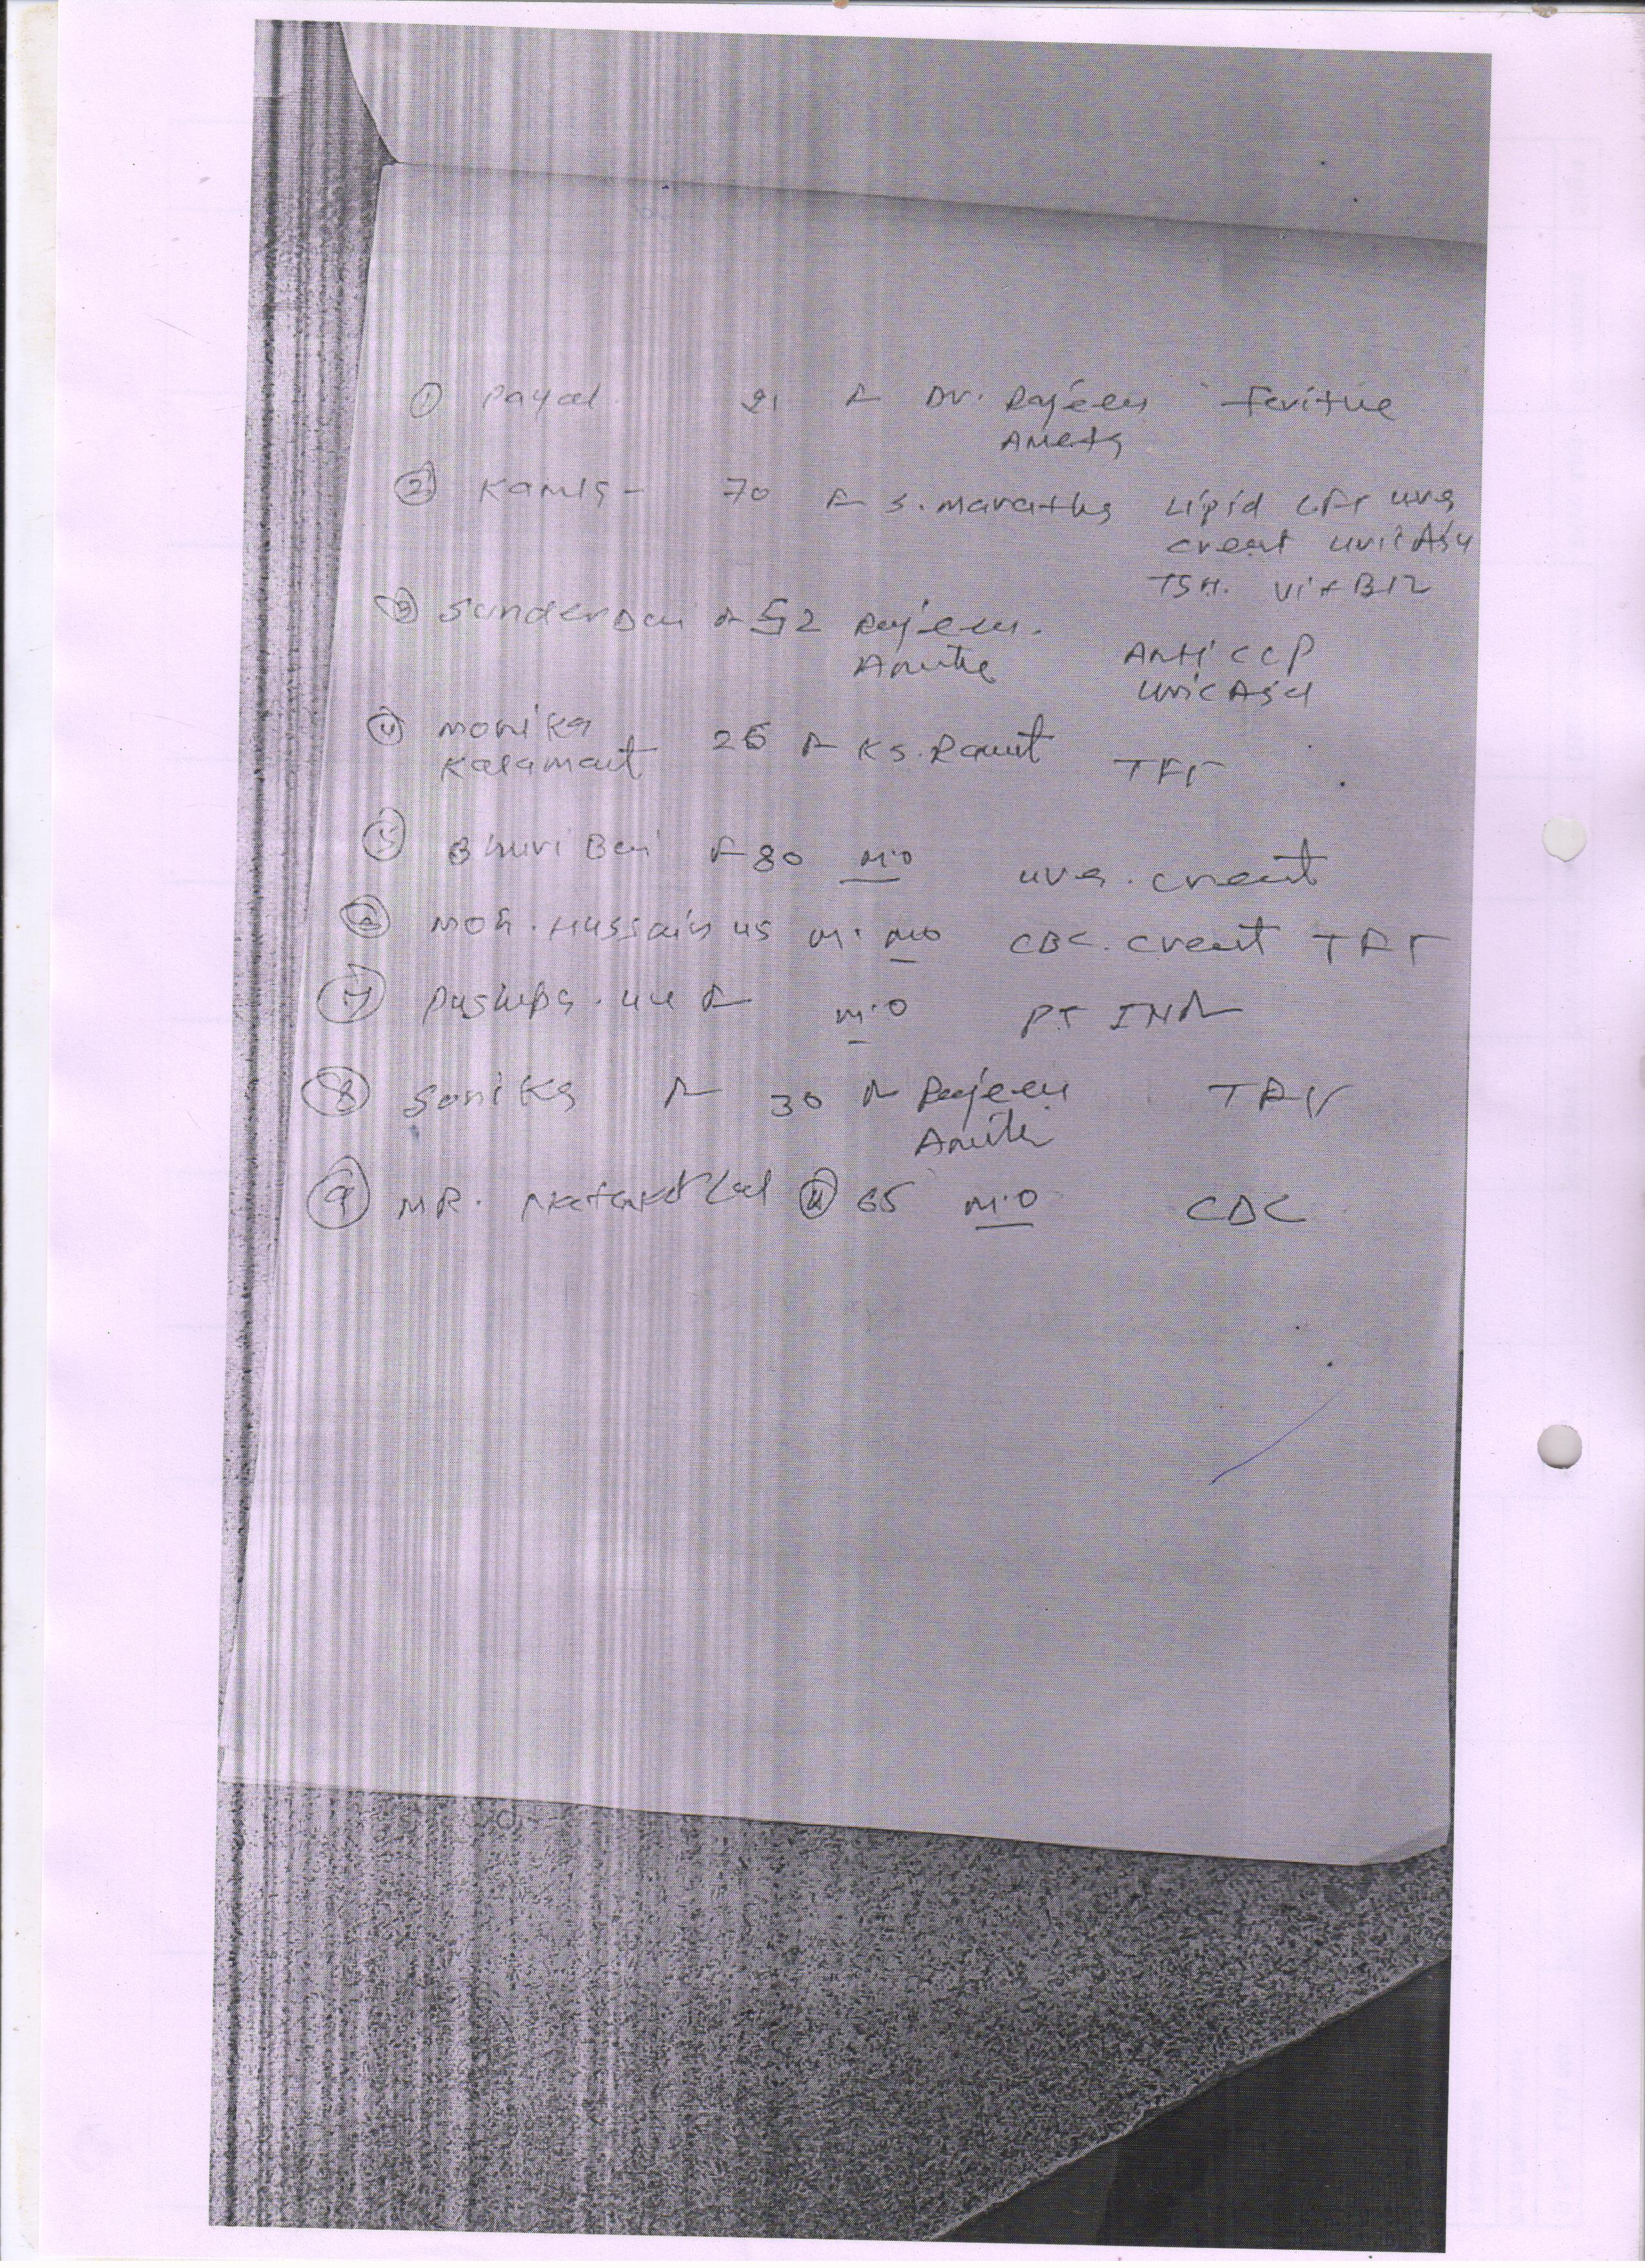 ① Payal 21 F Dr. Rajeev Feritine
Ameta
② Kamla - 70 F S. maratha Lipid LFT urea
creat uricAsid
TSH. Vit B12
③ Sunder Bai F 52 Rajeev.
Amita Anti CCP
uricAsid
④ monika 26 F KS. Rawat TFT
Kalamart
⑤ Bhuri Bai F 80 M.O urea. creat
⑥ moh. Hussain 45 M. MO CBC. creat TFT
⑦ Pushpa. 44 F M.O PT INR
⑧ Sonika F 30 F Rajeev TFT
Amita
⑨ MR. Lal M 65 M.O CBC